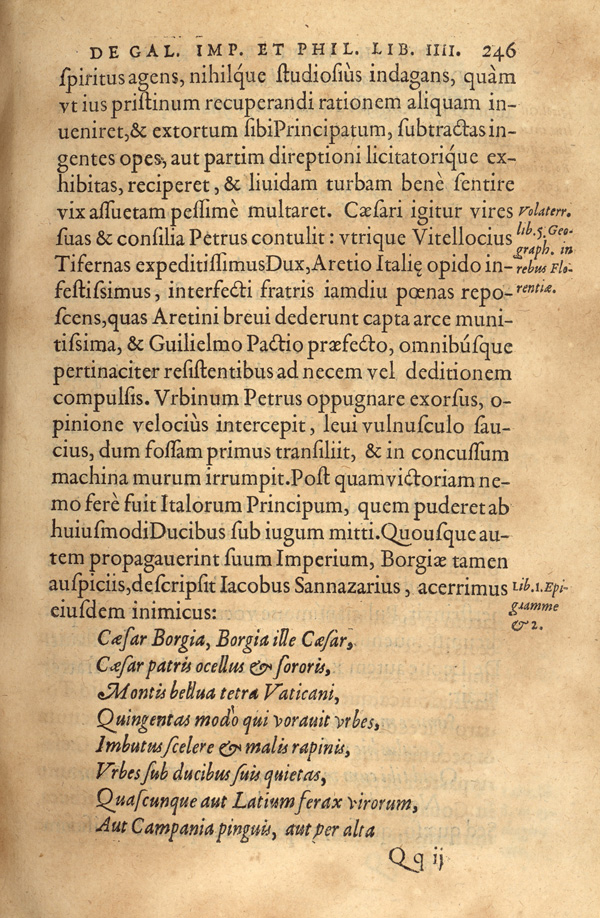 DE GAL. IMP. ET PHIL. LIB. IIII. 246
ſpiritus agens, nihilq́ue ſtudioſiùs indagans, quàm
vt ius priſtinum recuperandi rationem aliquam in-
ueniret, & extortum ſibi Principatum, ſubtractas in-
gentes opes, aut partim direptioni licitatoriq́ue ex-
hibitas, reciperet, & liuidam turbam benè ſentire
vix aſſuetam peſſimè multaret. Cæſari igitur vires
ſuas & conſilia Petrus contulit: vtrique Vitellocius
Tifernas expeditiſſimus Dux, Aretio Italię opido in-
feſtiſsimus, interfecti fratris iamdiu pœnas repo-
ſcens, quas Aretini breui dederunt capta arce muni-
tiſsima, & Guilielmo Pactio præfecto, omnibúſque
pertinaciter reſiſtentibus ad necem vel deditionem
compulſis. Vrbinum Petrus oppugnare exorſus, o-
pinione velociùs intercepit, leui vulnuſculo ſau-
cius, dum foſſam primus tranſiliit, & in concuſſum
machina murum irrumpit. Poſt quam victoriam ne-
mo ferè fuit Italorum Principum, quem puderet ab
huiuſmodi Ducibus ſub iugum mitti. Quouſque au-
tem propagauerint ſuum Imperium, Borgiæ tamen
auſpiciis, deſcripſit Iacobus Sannazarius, acerrimus
eiuſdem inimicus:
Cæſar Borgia, Borgia ille Cæſar,
Cæſar patris ocellus & ſororis,
Montis bellua tetra Vaticani,
Quingentas modò qui vorauit vrbes,
Imbutus ſcelere & malis rapinis,
Vrbes ſub ducibus ſuis quietas,
Quaſcunque aut Latium ferax virorum,
Aut Campania pinguis, aut per alta
Qq ij
Volaterr.
lib. 5. Geo-
graph. in
rebus Flo-
rentiæ.
Lib. 1. Epi-
gramme
& 2.